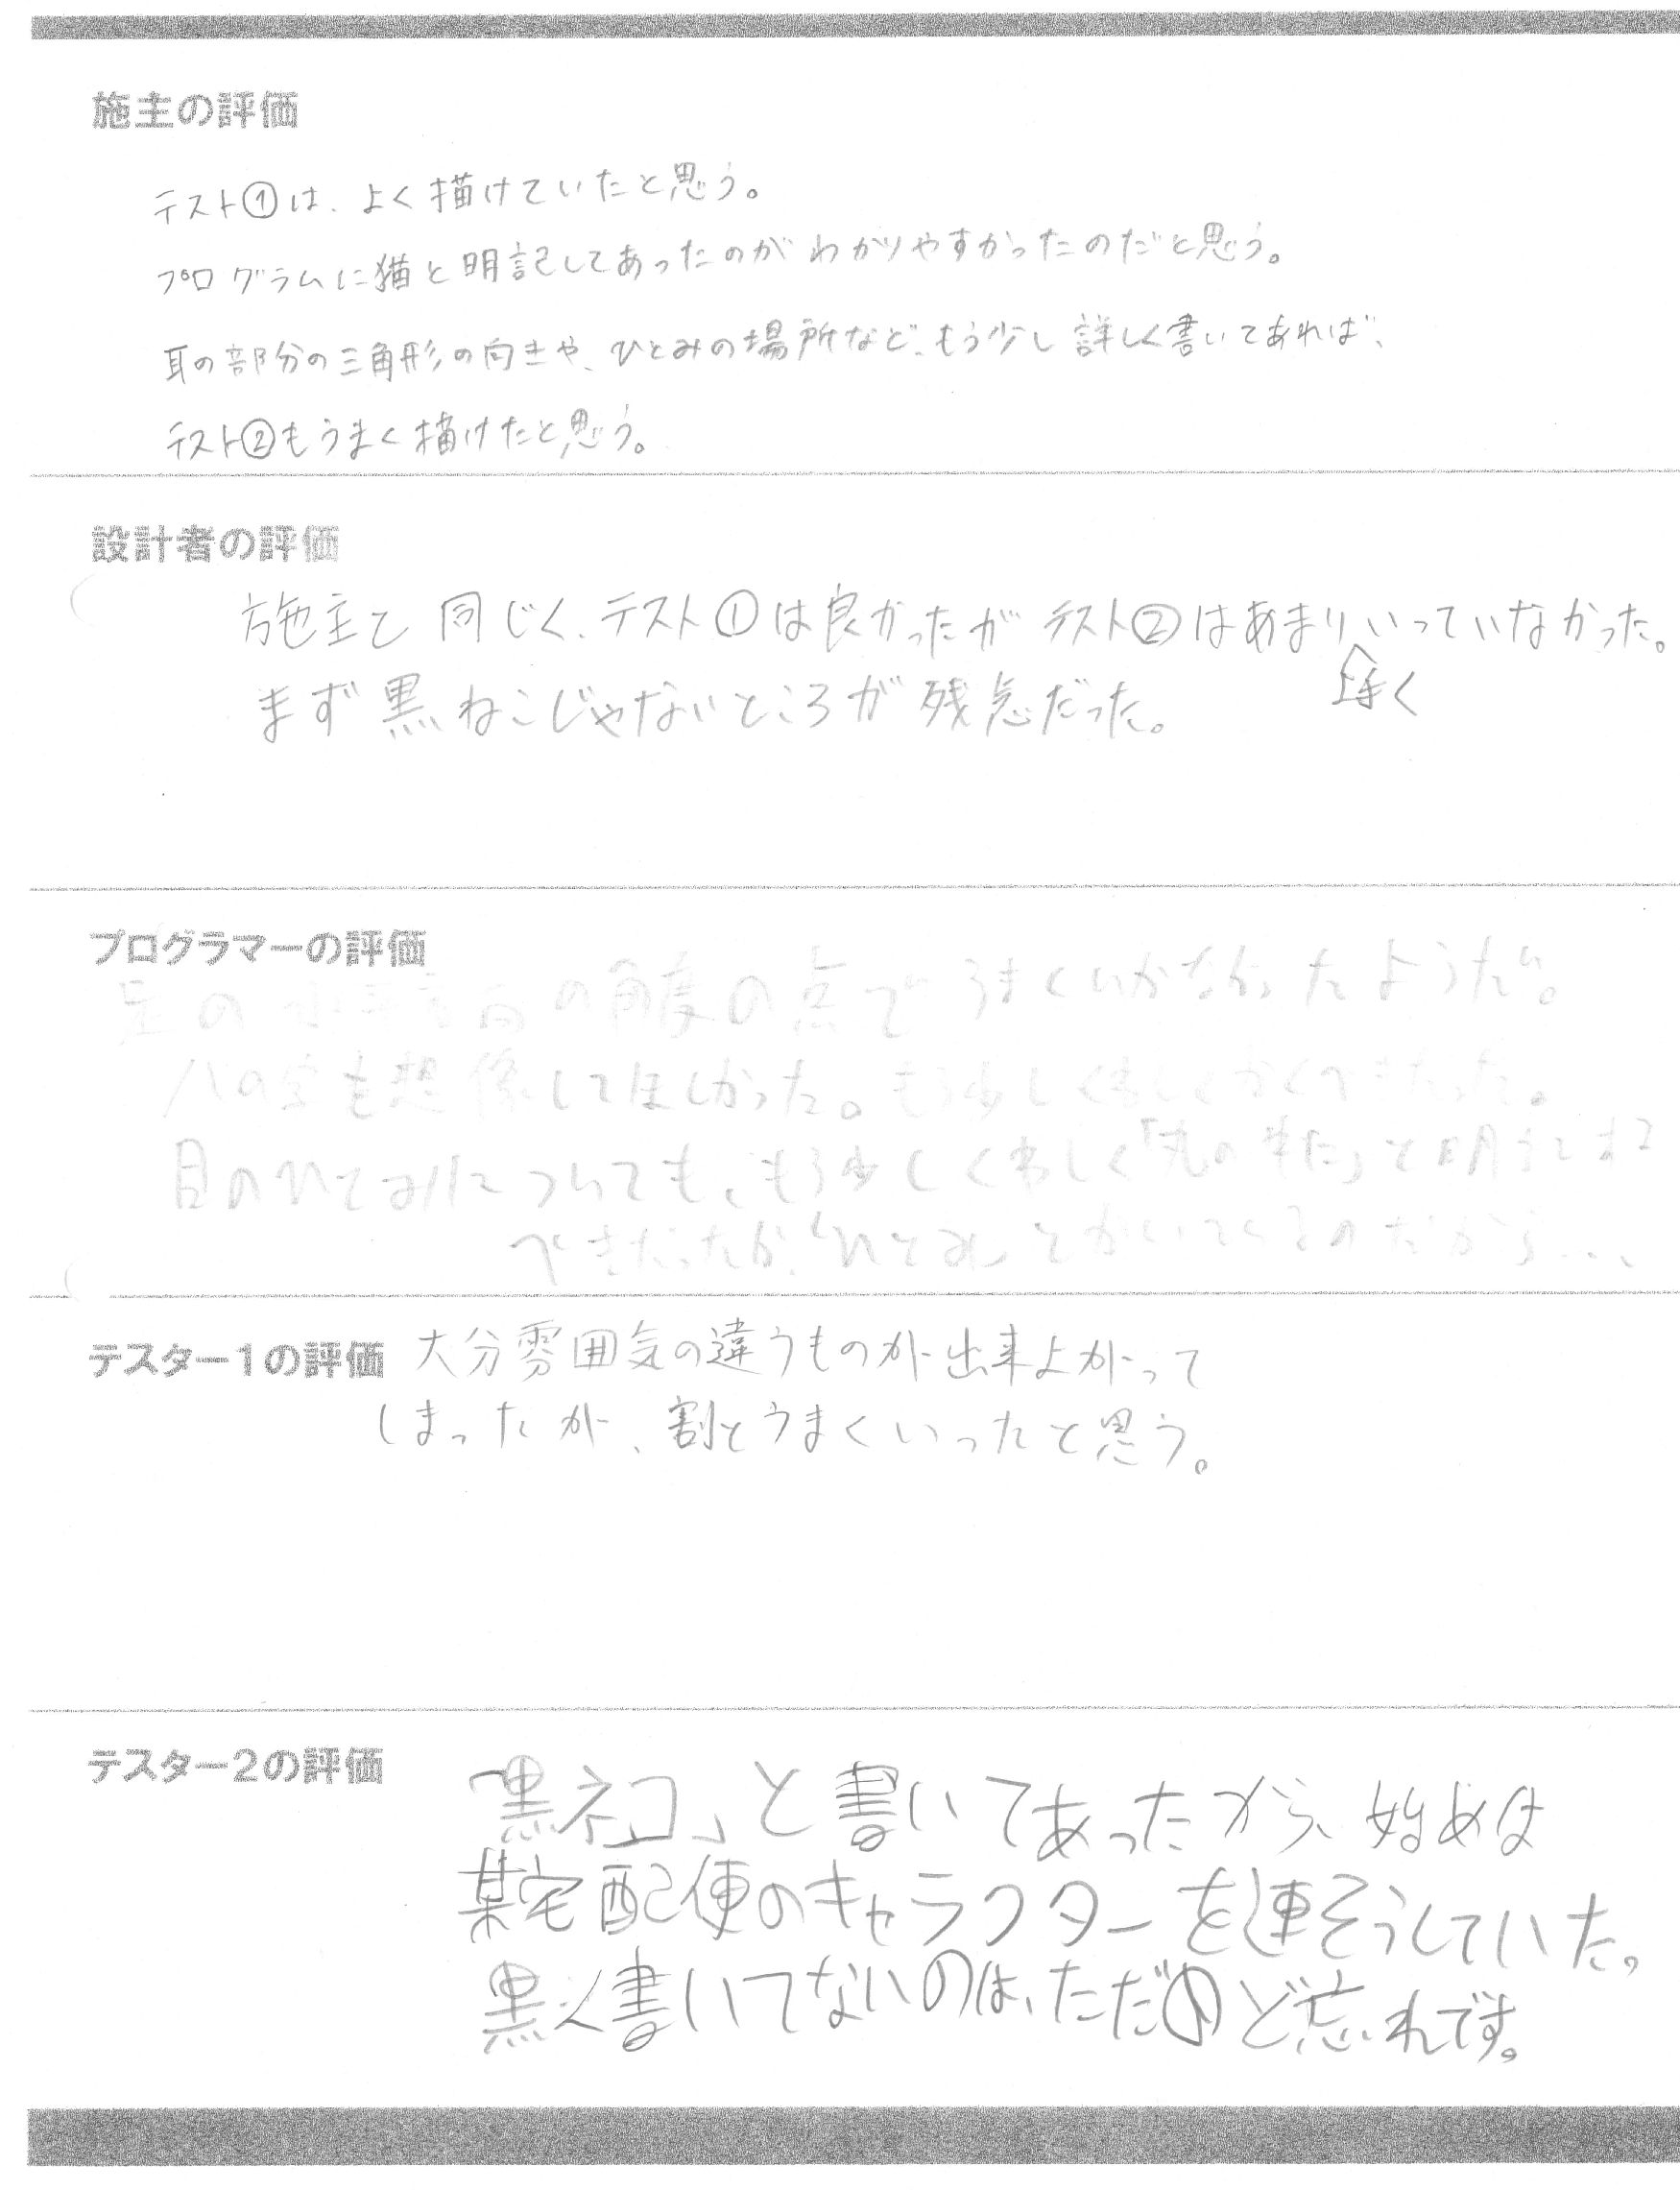 施主の評価
テスト①は、よく描けていたと思う。
プログラムに猫と明記してあったのがわかりやすかったのだと思う。
耳の部分の三角形の向きや、ひとみの場所など、もう少し詳しく書いてあれば、
テスト②もうまく描けたと思う。
設計者の評価
施主と同じく、テスト①は良かったがテスト②はあまり上手くいっていなかった。
まず黒ねこじゃないところが残念だった。
プログラマーの評価
足の水平方向の角度の点でうまくいかなかったようだ。
ハの字を想像してほしかった。もう少しくわしくかくべきだった。
目のひとみについても、もう少しくわしく「丸の
べきだったが、「ひとみ」とかいてくるのだから…、
テスター1の評価
大分雰囲気の違うものが出来よがって
しまったが、割とうまくいったと思う。
テスター2の評価
「黒ネコ」と書いてあったから、始めは
某宅配便のキャラクターを連そうしていた。
黒く書いてないのは、ただのど忘れです。